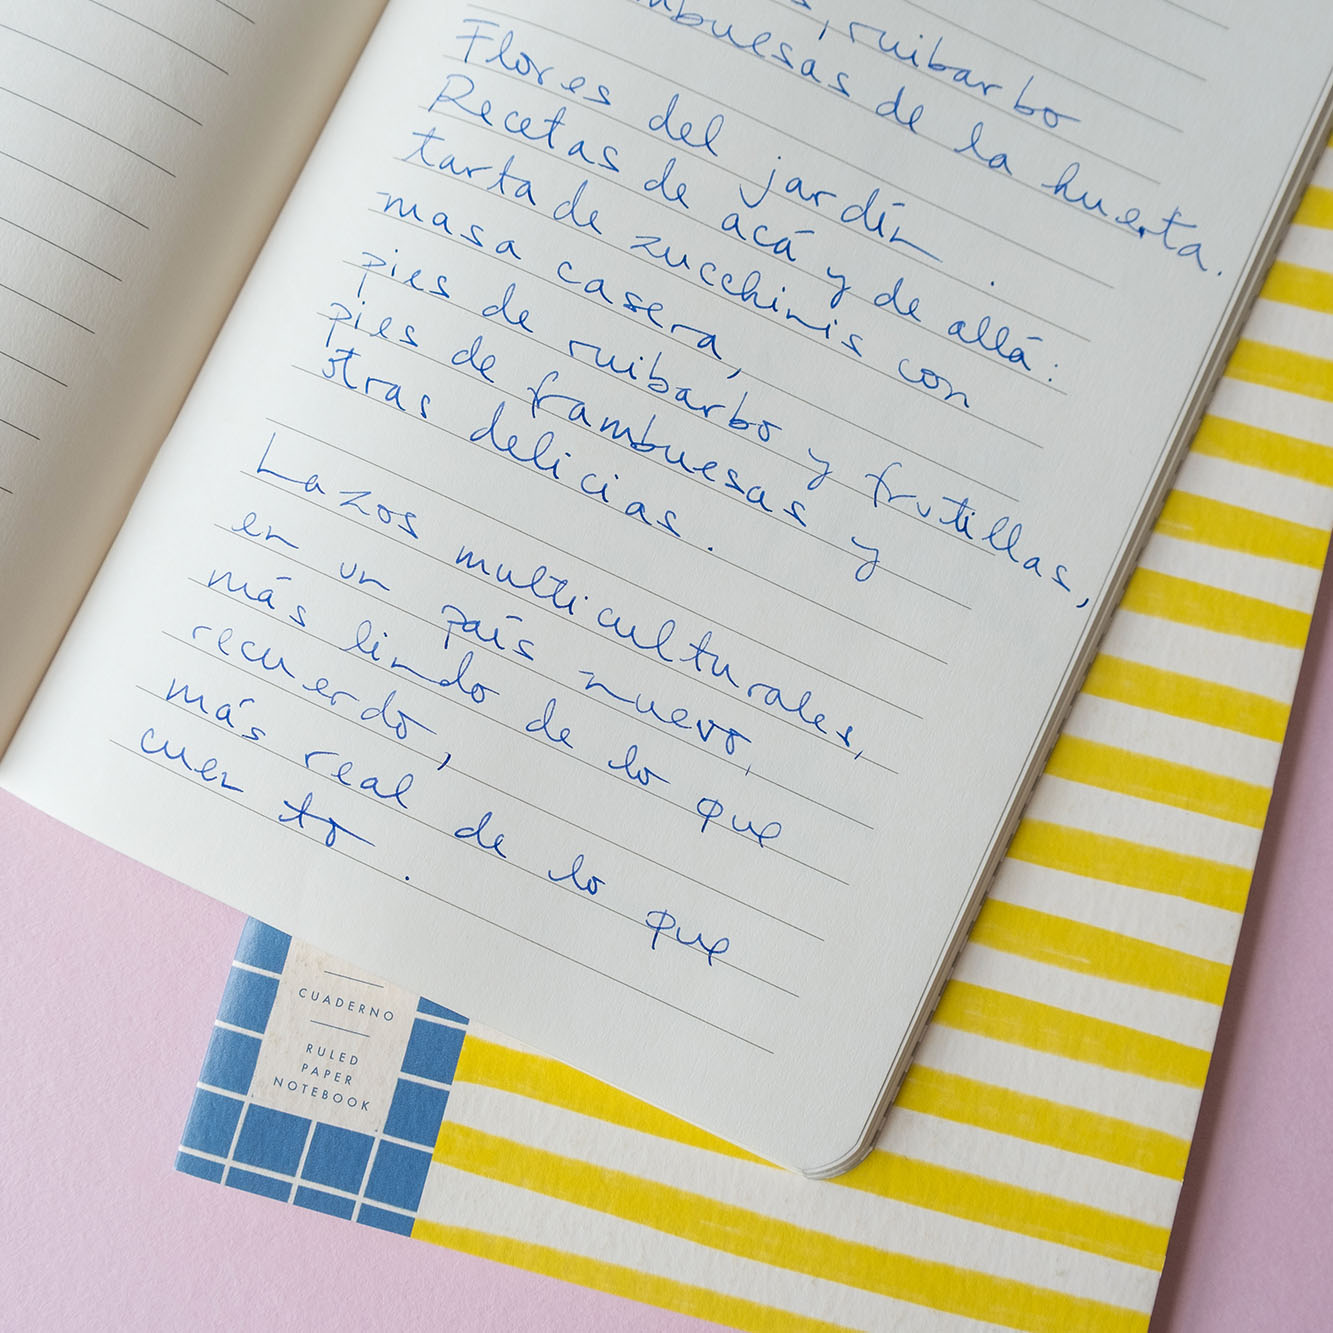 ruibarbo
de la huerta.
Flores del jardín.
Recetas de acá y de allá:
tarta de zucchinis con
masa casera,
pies de ruibarbo y frutillas,
pies de frambuesas y
otras delicias.
Lazos multiculturales,
en un país nuevo,
más lindo de lo que
recuerdo,
más real de lo que
cuento.
CUADERNO
RULED
PAPER
NOTEBOOK